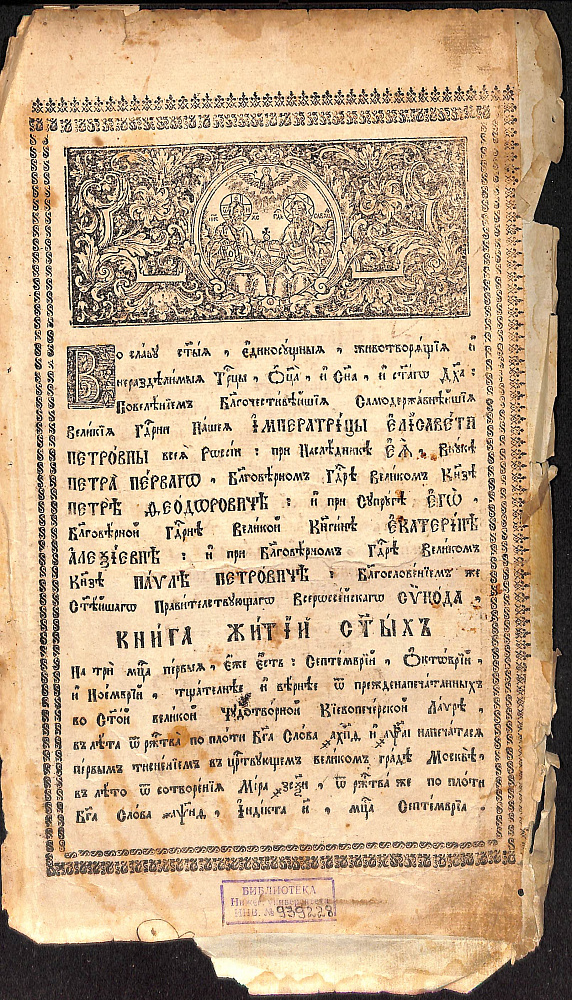 Во славу ст҃ыѧ , є҆диносꙋщныѧ , животворѧ́щїѧ и҆
нераздѣли́мыѧ Тр҃цы , Ѻ҆ц҃а̀ , и҆ Сн҃а , и҆ ст҃а́гѡ Дх҃а :
Повелѣ́нїемъ Бл҃гочести́вѣйшїѧ Самодержа́внѣйшїѧ
Вели́кїѧ Гд҃рни На́шеѧ І҆МПЕРАТРІ́ЦЫ Е҆ЛІСАВЕ́ТИ
ПЕТРО́ВНЫ всеѧ̀ Рѡссі́и : при Наслѣ́дникѣ Е҆Ѧ̀ , Внꙋ́кѣ
ПЕТРА̀ ПЕ́РВАГѠ , Бл҃говѣ́рномъ Гд҃рѣ Вели́комъ Кн҃зѣ
ПЕТРѢ̀ Ѳ҆ЕѠДѠРОВИЧѢ : и҆ при Сꙋпрꙋ́гѣ Е҆ГѠ̀ ,
Бл҃говѣ́рной Гд҃рнѣ Вели́кой Кн҃ги́нѣ Е҆КАТЕРІ́НѢ
А҆ЛЕѮІ́ЕВНѢ : и҆ при Бл҃говѣ́рномъ Гд҃рѣ Вели́комъ
Кн҃зѣ ПА́ѴЛѢ ПЕТРО́ВИЧѢ : Бл҃гослове́нїемъ же
Ст҃ѣ́йшагѡ Прави́телствꙋющагѡ Всерѡссі́йскагѡ СѴНО́ДА ,
КНИ́ГА ЖИТІ́Й СТ҃Ы́ХЪ
На трѝ мц҃а пе́рвыѧ , є҆́же є҆́сть : Септе́мврїй , Ѻ҆ктѡ́врїй ,
и҆ Ное́мврїй , тща́телнѣе и҆ вѣ́рнѣе ѿ прежденапеча́танныхъ
во Ст҃о́й вели́кой Чꙋдотво́рной Кїевопече́рской Ла́ѵрѣ ,
въ лѣ̑та ѿ рж҃тва̀ по пло́ти Бг҃а Сло́ва ,ахп҃ѳ, и҆ ,аѱ҃аі напеча́тасѧ
пе́рвымъ тисне́нїемъ въ ца҃рствꙋющемъ вели́комъ гра́дѣ Москвѣ̀ ,
въ лѣ́то ѿ сотворе́нїѧ Мі́ра ,зсѯ҃и , ѿ рж҃тва́ же по пло́ти
Бг҃а Сло́ва ,аѱн҃ѳ , І҆нді́кта и҃ , мц҃а Септе́мврїа .
БИБЛИОТЕКА
ИНВ. № 939228